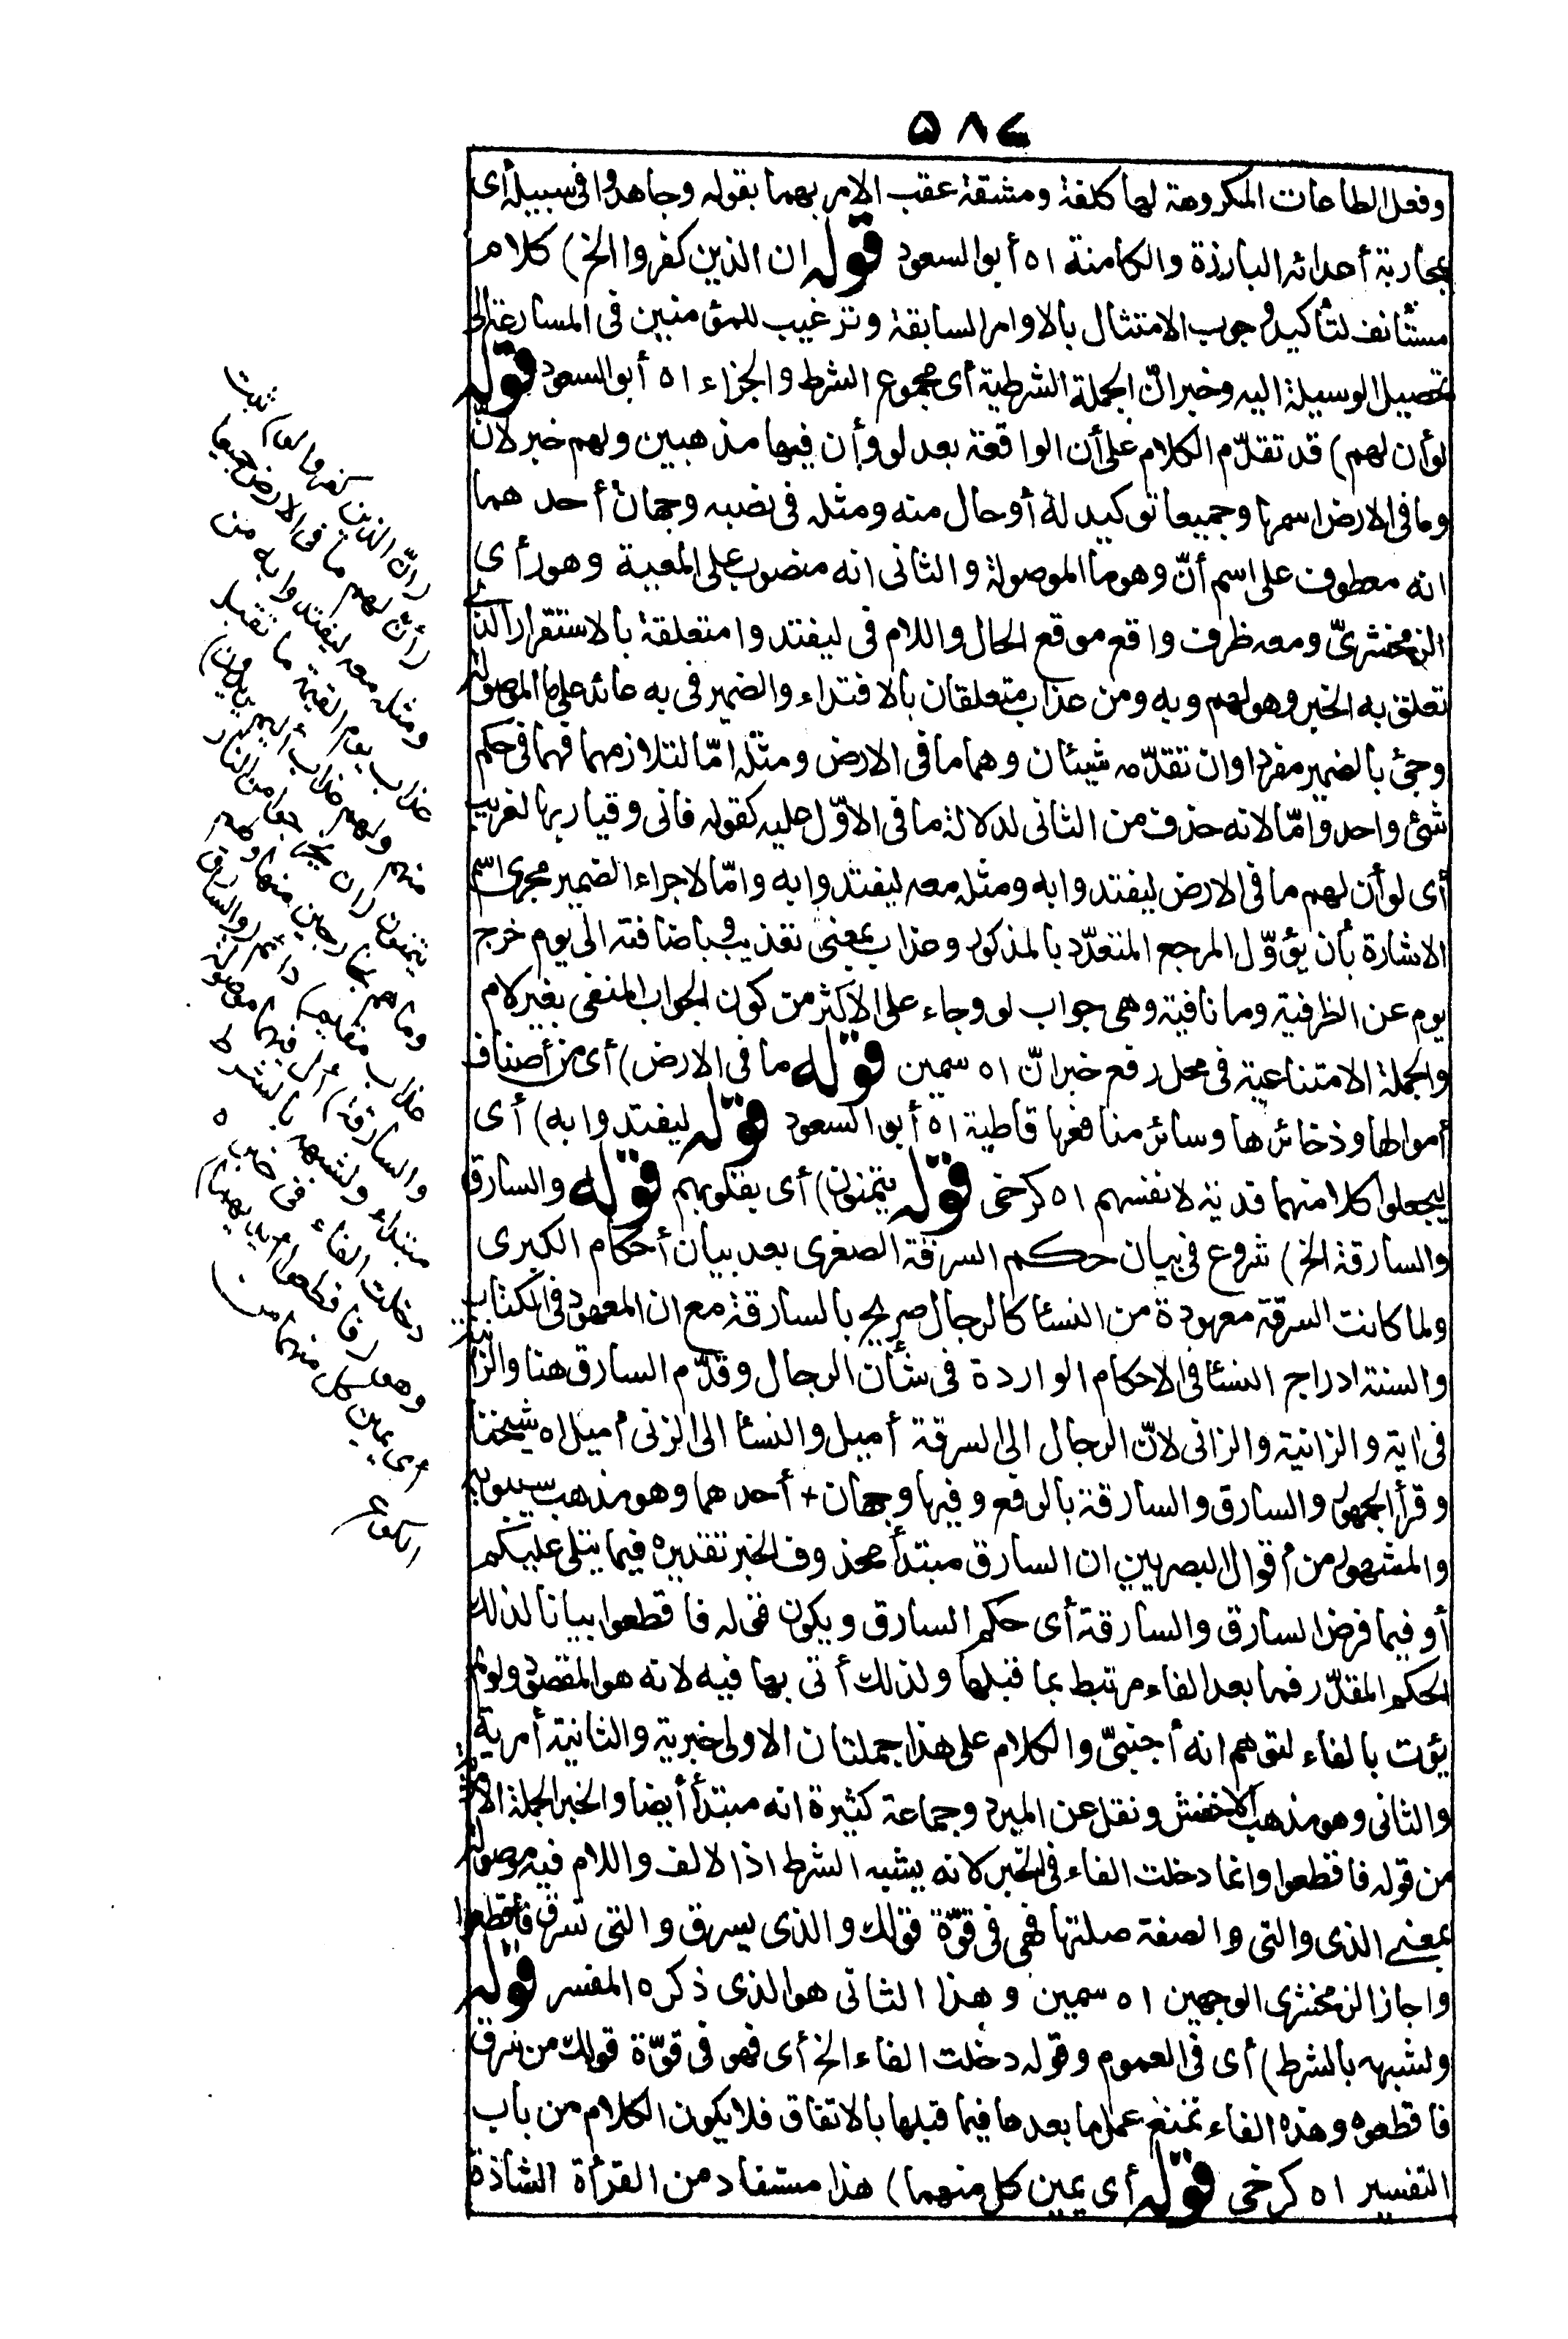 ٥٨٧
وفعل الطاعات المكروهة لها كلفة ومشقة عقب الامر بهما بقوله وجاهدوا فى سبيله أى
بمحاربة أعدائه البارزة والكامنة اه أبو السعود قوله ان الذين كفروا الخ) كلام
مستأنف لتأكيد وجوب الامتثال بالاوامر السابقة وترغيب للمؤمنين فى المسارعة الى
تحصيل الوسيلة اليه وخبر انّ الجملة الشرطية أى مجموع الشرط والجزاء اه أبو السعود قوله
لو أن لهم) قد تقدّم الكلام على أن الواقعة بعد لو وأن فيها مذهبين ولهم خبر لانّ
وما فى الارض اسمها وجميعا توكيد له أو حال منه ومثله فى نصبه وجهان أحدهما
انه معطوف على اسم أنّ وهو ما الموصولة والثانى انه منصوب على المعية وهو رأى
الزمخشرىّ ومعه ظرف واقع موقع الحال واللام فى ليفتدوا متعلقة بالاستقرار الذى
تعلق به الخبر وهو لهم وبه ومن عذاب متعلقان بالافتداء والضمير فى به عائد على ما الموصولة
وجئ بالضمير مفردا وان تقدّمه شيئان وهما ما فى الارض ومثله امّا لتلازمهما فهما فى حكم
شئ واحد وامّا لانه حذف من الثانى لدلالة ما فى الاوّل عليه كقوله فانى وقيار بها لغريب
أى لو أن لهم ما فى الارض ليفتدوا به ومثله معه ليفتدوا به وامّا لاجراء الضمير مجرى اسم
الاشارة بأن يؤوّل المرجع المتعدّد بالمذكور وعذاب بمعنى تعذيب وباضافته الى يوم خرج
يوم عن الظرفية وما نافية وهى جواب لو وجاء على الاكثر من كون الجواب المنفى بغير لام
والجملة الامتناعية فى محل رفع خبر انّ اه سمين قوله ما فى الارض) أى من أصناف
أموالها وذخائرها وسائر منافعها قاطبة اه أبو السعود قوله ليفتدوا به) أى
ليجعلوا كلا منهما فدية لانفسهم اه كرخى قوله يتمنون) أى بقلوبهم قوله والسارق
والسارقة الخ) شروع فى بيان حكم السرقة الصغرى بعد بيان أحكام الكبرى
ولما كانت السرقة معهودة من النسا كالرجال صرح بالسارقة مع ان المعهود فى الكتاب
والسنة ادراج النسا فى الاحكام الواردة فى شأن الرجال وقدّم السارق هنا والزانية
فى اية والزانية والزانى لانّ الرجال الى السرقة أميل والنسا الى الزنى أميل اه شيخنا
وقرأ الجمهور والسارق والسارقة بالرفع وفيها وجهان + أحدهما وهو مذهب سيبويه
والمشهور من أقوال البصريين ان السارق مبتدأ محذوف الخبر تقديره فيما يتلى عليكم
أو فيما فرض السارق والسارقة أى حكم السارق ويكون قوله فاقطعوا بيانا لذلك
الحكم المقدّر فما بعد الفاء مرتبط بما قبلها ولذلك أتى بها فيه لانه هو المقصود ولو لم
يؤت بالفاء لتوهم انه أجنبىّ والكلام على هذا جملتان الاولى خبرية والثانية أمرية
والثانى وهو مذهب الاخفش ونقل عن المبرد وجماعة كثيرة انه مبتدأ أيضا والخبر الجملة الامرية
من قوله فاقطعوا وانما دخلت الفاء فى الخبر لانه يشبه الشرط اذ الالف واللام فيه موصولة
بمعنى الذى والتى والصفة صلتها فهى فى قوّة قولك والذى يسرق والتى تسرق فاقطعوا
واجاز الزمخشرى الوجهين اه سمين وهذا الثانى هو الذى ذكره المفسر قوله
ولشبهه بالشرط) أى فى العموم وقوله دخلت الفاء الخ أى فهو فى قوّة قولك من سرق
فاقطعوه وهذه الفاء تمنع عمل ما بعدها فيما قبلها بالاتفاق فلا يكون الكلام من باب
التفسير اه كرخى قوله أى يمين كل منهما) هذا مستفاد من القرأة الشاذة
(انّ الذين كفروا لو) ثبت
(أنّ لهم ما فى الارض جميعا
ومثله معه ليفتدوا به من
عذاب يوم القيمة ما تقبل
منهم ولهم عذاب أليم يريدون)
يتمنون (ان يخرجوا من النار
وما هم بخارجين منها ولهم
عذاب مقيم) دائم (والسارق
والسارقة) أل فيهما موصولة
مبتداء ولشبهه بالشرط
دخلت الفاء فى خبره
وهو (فاقطعوا أيديهما)
أى يمين كل منهما من
الكوع